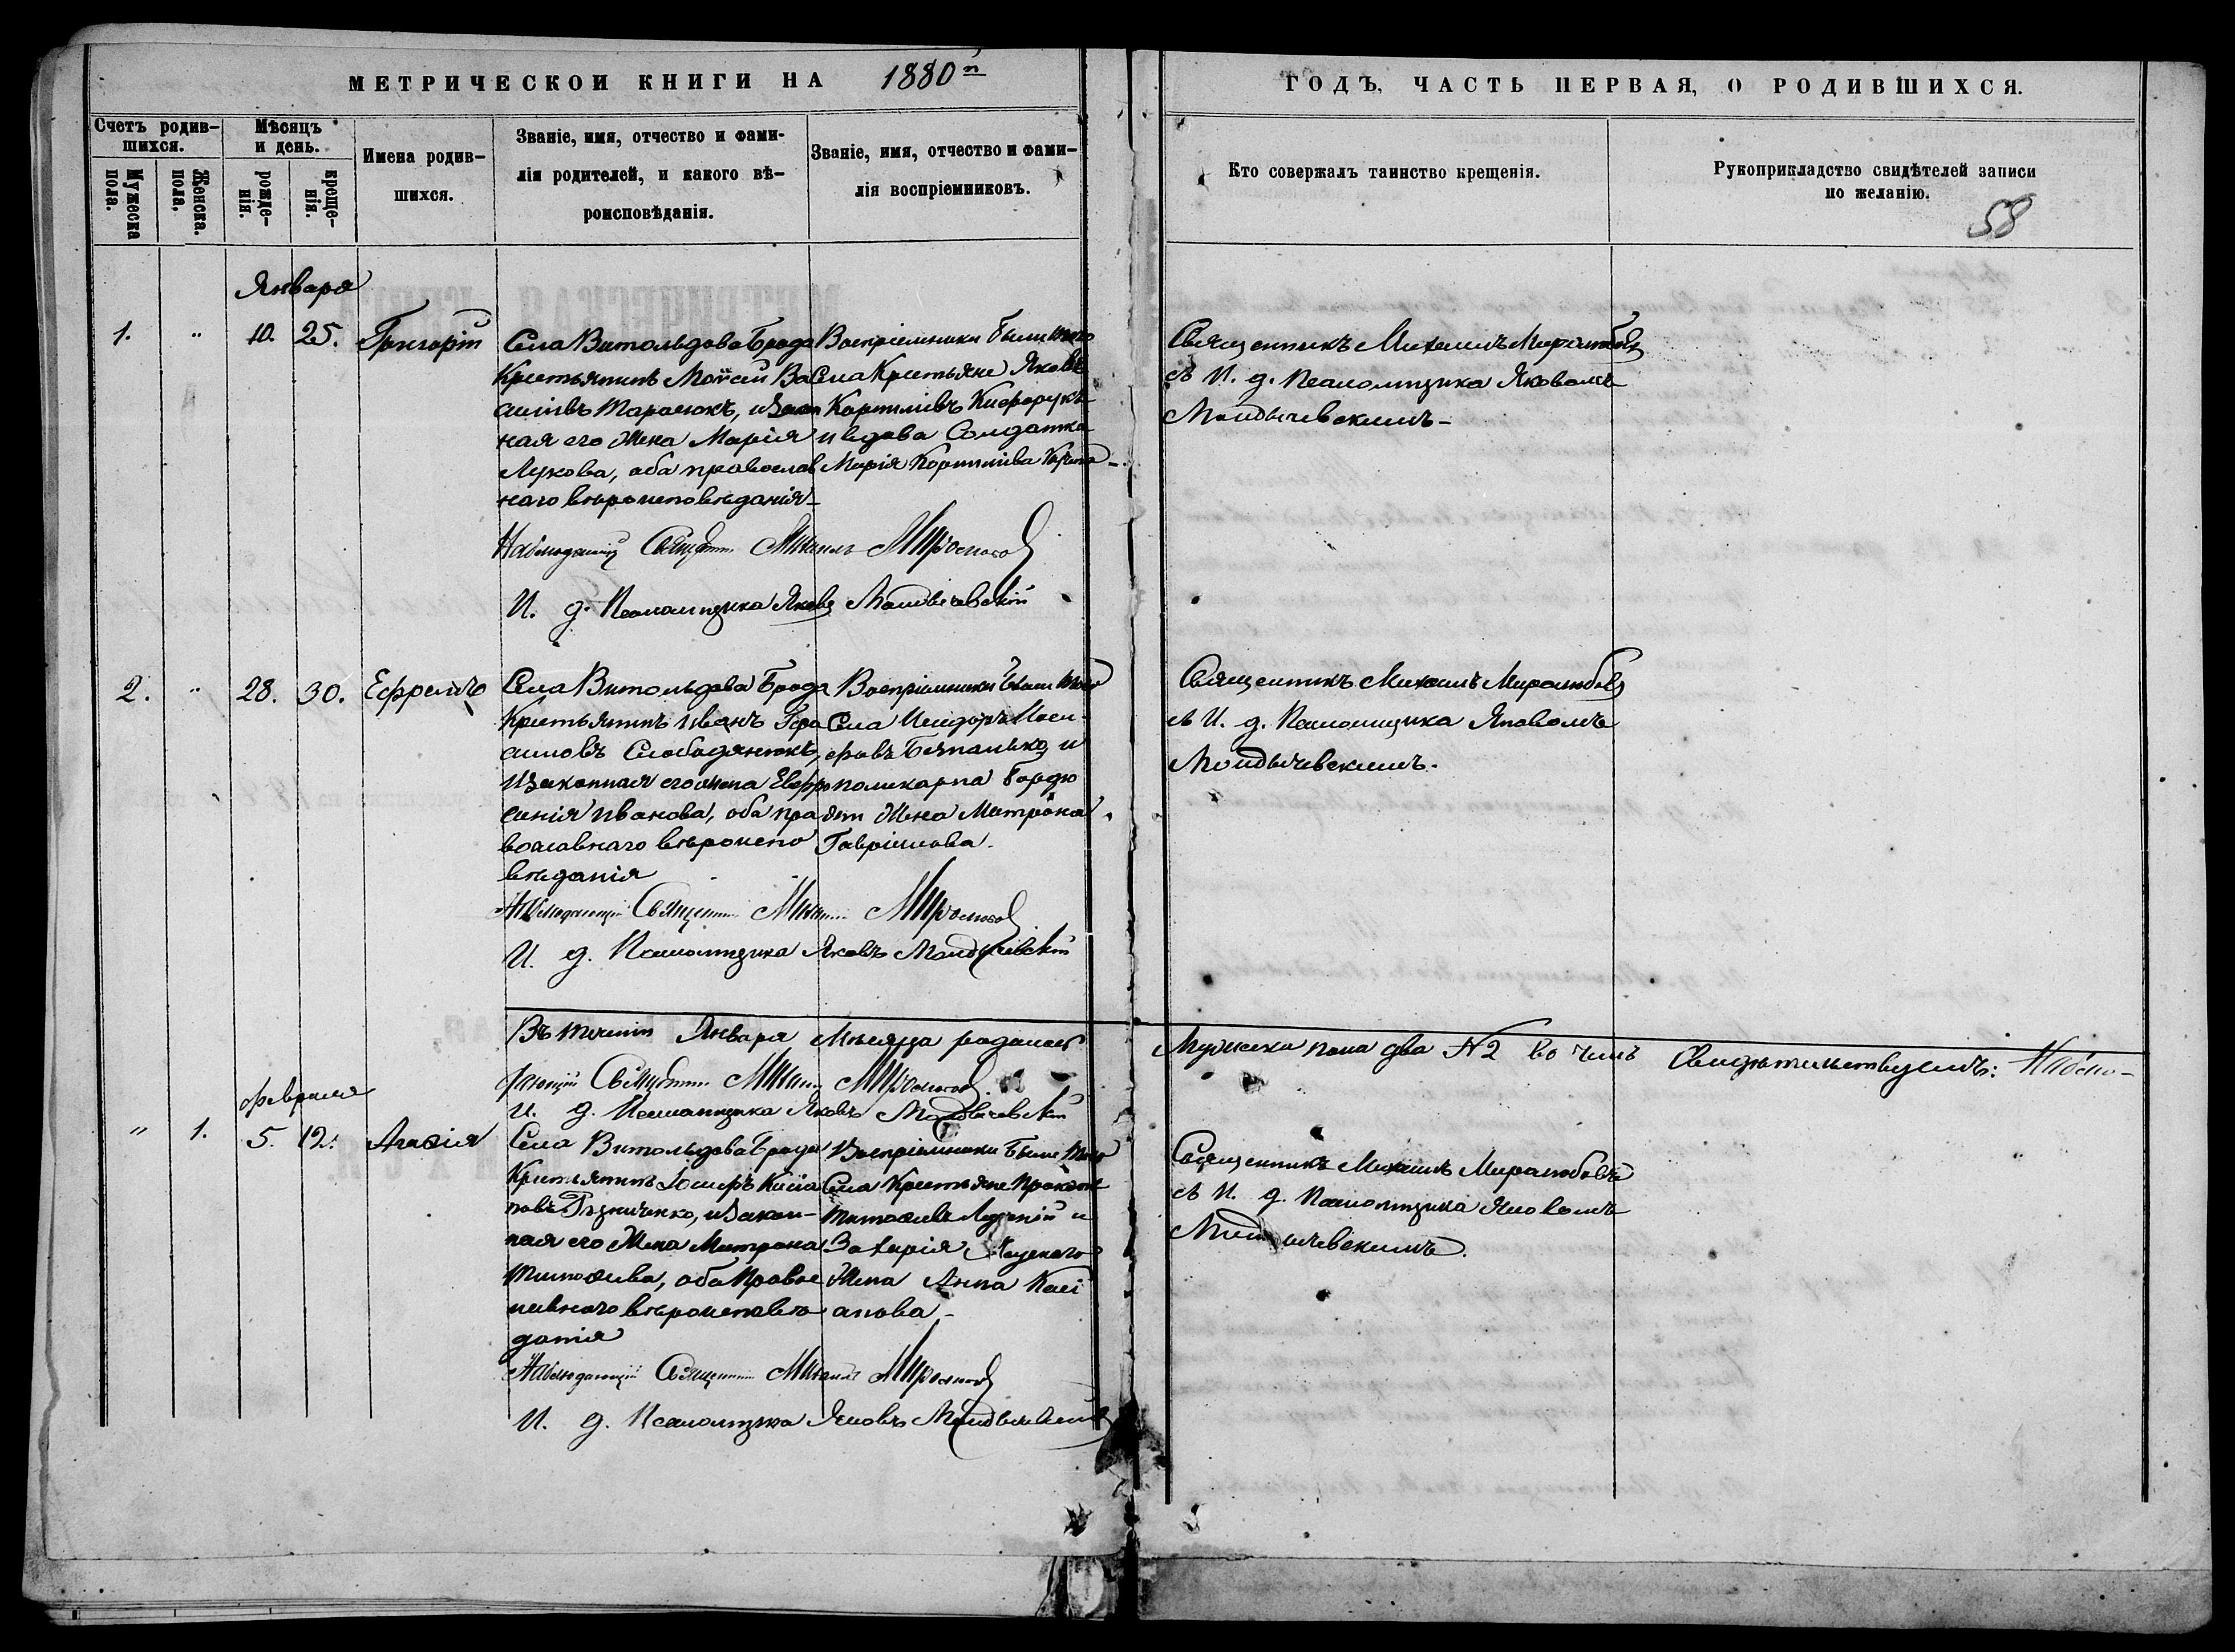 МЕТРИЧЕСКОЙ КНИГИ НА 1880й
ГОДЪ, ЧАСТЬ ПЕРВАЯ, О РОДИВШИХСЯ.
Счетъ родив-
шихся.
Мѣсяцъ
и день.
Мужеска
пола.
Женска.
пола,
рожде-
нія.
креще-
нія.
Имена родив-
шихся.
Званіе, имя, отчество и фами-
лія родителей, и какого вѣ-
роисповѣданія.
Званіе, имя, отчество и фами-
лія воспріемниковъ.
Кто совержалъ таинство крещенія.
Рукоприкладство свидѣтелей записи
по желанію.
58
Января
1. " 10. 25. Григорій
Села Витольдова Брода
Крестьянинъ Моѵсей Ва
силіевъ Тарасюкъ, и закон
ная его Жена Марія
Лукова, оба православ
наго вѣроисповѣданія
Воспріемники были того
Села Крестьяне Яковъ
Корниліевъ
и вдова Солдатка
Марія Корниліева
Священникъ Михаилъ Миролюбовъ
съ И. д. Псаломщика Яковомъ
Мондычевскимъ
Наблюдающій Священникъ Михаилъ Миролюбовъ
И. д. Псаломщика Яковъ Мондычевскій
2. " 28. 30. Ефремъ
Села Витольдова Брода
Крестьянинъ Иванъ Гера
симовъ Слободянюкъ,
и законная его жена Евфро
синія Иванова, оба пра
вославнаго вѣроиспо
вѣданія
Воспріемники были того
Села Исидоръ Иоси
фовъ Безпалько и
Поликарпа Бордю
Жена Матрона
Гавріилова
Священникъ Михаилъ Миролюбовъ
съ И. д. Псаломщика Яковомъ
Мондычевскимъ
Наблюдающій Священникъ Михаилъ Миролюбовъ
И. д. Псаломщика Яковъ Мондычевскій
Въ теченіи Января Мѣсяца родилось
Мужеска пола два №2 во чемъ Свидѣтельствуемъ: Наблю-
дающій Священникъ Михаилъ Миролюбовъ
И. д. Псаломщика Яковъ Мондычевскій
Февраля
" 1. 5. 12. Агафія
Села Витольдова Брода
Крестьянинъ
и закон-
ная его Жена Матрона
Тимофіева, оба Правос
лавнаго вѣроисповѣ
данія
Воспріемники были того
Села Крестьяне
Тимофіевъ
Захарія
Жена Анна Касі
анова
Священникъ Михаилъ Миролюбовъ
съ И. д. Псаломщика Яковомъ
Мондычевскимъ.
Наблюдающій Священникъ Михаилъ Миролюбовъ
И. д. Псаломщика Яковъ Мондычевскій